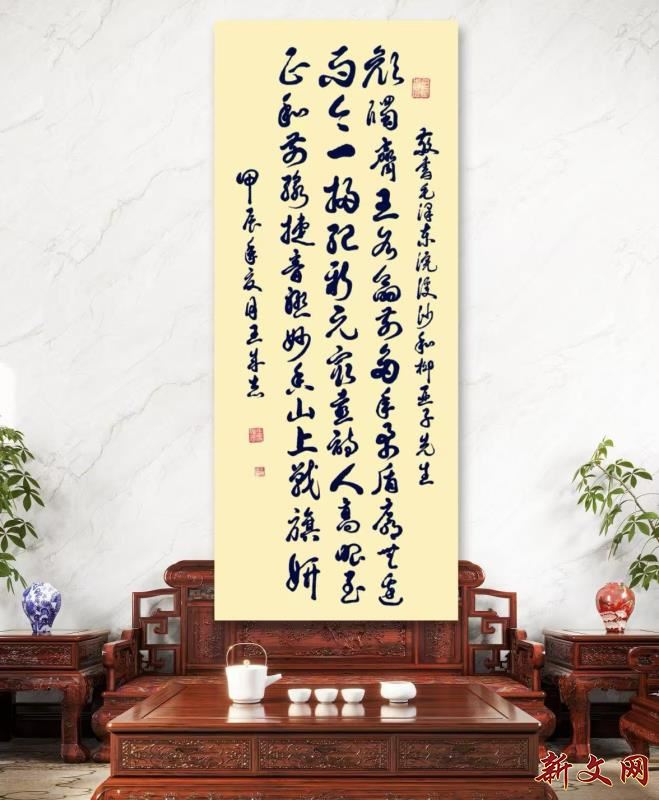 敬書毛泽东浣溪沙和柳亚子先生
颜斶齊王各命前多年矛盾廓無边
而今一掃纪新元最喜诗人高唱至
正和前线捷音联妙香山上战旗妍
甲辰年夏月王
新文网